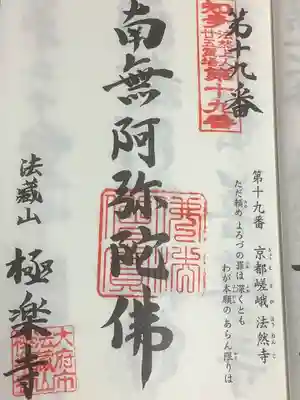 第十九番
知多
法然上人
廿五霊場
第十九番
第十九番 京都嵯峨 法然寺
ただ頼め よろづの罪は 深くとも
わが本願の あらん限りは
南無阿弥陀佛
法藏山 極楽寺
大府市